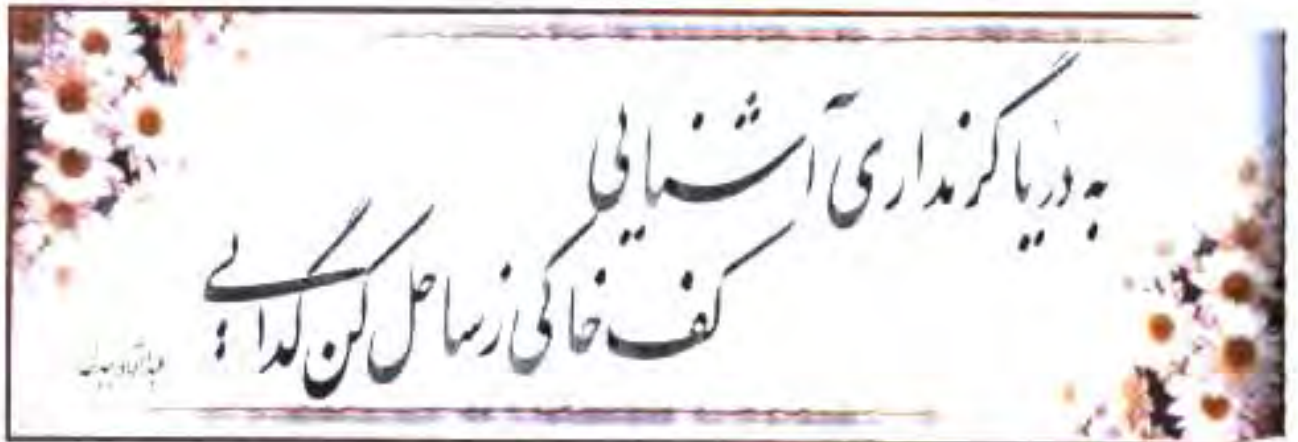 به دریا گر نداری آشنایی
کف خاکی ز ساحل کن گدایی